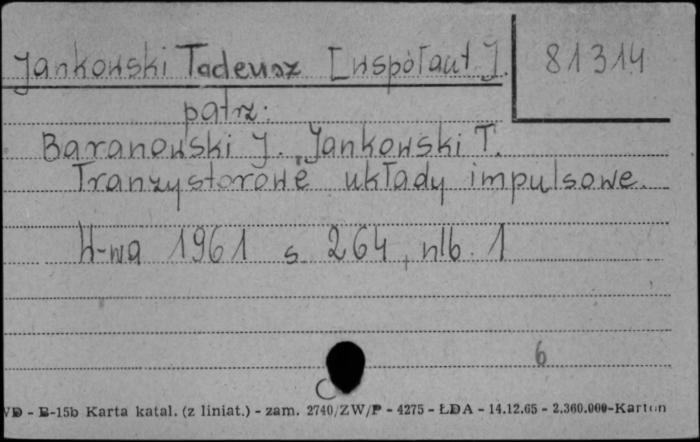 Jankowski Tadeusz [współaut].
81314
patrz:
Baranowski J., Jankowski T.
Tranzystorowe układy impulsowe.
W-wa 1961 s. 264, nlb. 1
6
VD - B-15b Karta katal. (z liniat.) - zam. 2740/ZW/P - 4275 - ŁDA - 14.12.65 - 2.360.000-Karton